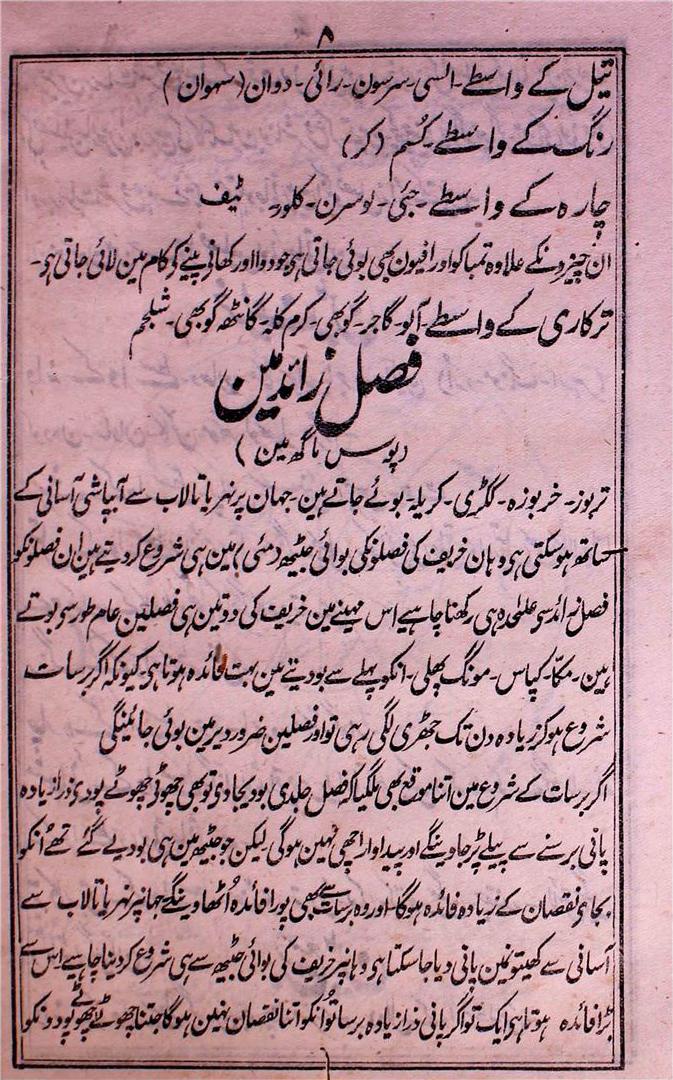 ۸
تیل کے واسطے۔ السی۔ سرسون۔ رائی۔ دوان (سہوان)
رنگ کے واسطے۔ کسُم (کر)
چارہ کے واسطے۔ جئی۔ لوسرن۔ کلور۔ ٹیف
ان چیزونکے علاوہ تمباکو اور افیون بھی بوئی جاتی ہی جو دوا اور کھانے پینے کو کام مین لائی جاتی ہی۔
ترکاری کے واسطے۔ آلو۔ گاجر۔ گوبھی۔ کرم کلہ۔ گانٹھ گوبھی۔ شلجم
فصل زائد مین
(پوس ماگھ مین)
تربوز۔ خربوزہ۔ ککڑی۔ کریلہ۔ بوئے جاتے ہین۔ جہان پر نہر یا تالاب سے آبپاشی آسانی کے
ساتھ ہو سکتی ہی وہان خریف کی فصلونکی بوائی جیٹھ (مئی) مین ہی شروع کر دیتے ہین ان فصلونکو
فصل زائد سی علٰحدہ ہی رکھنا چاہیے اس مہینے مین خریف کی دو تین ہی فصلین عام طور سی بوتے
ہین۔ مکّا۔ کپاس۔ مونگ پھلی۔ انکو پہلے سے بو دینے مین بہت فائدہ ہوتا ہی کیونکہ اگر برسات
شروع ہو کر زیادہ دن تک جھڑی لگی رہی تو اور فصلین ضرور دیر مین بوئی جائینگی
اگر برسات کے شروع مین اتنا موقع بھی ملگیا کہ فصل جلدی بو دیجاوی تو بھی چھوٹی چھوٹے پودی ذرا زیادہ
پانی برسنے سے پیلے پڑ جاوینگے اور پیداوار اچھی نہین ہوگی لیکن جو جیٹھ مین ہی بو دیے گئے تھے اُنکو
بجای نقصان کے زیادہ فائدہ ہوگا اور وہ برسات سے بھی پورا فائدہ اُٹھاوینگے جہانپر نہر یا تالاب سے
آسانی سے کھیتونمین پانی دیا جا سکتا ہی وہانپر خریف کی بوائی جیٹھ سے ہی شروع کر دینا چاہیے اس سے
بڑا فائدہ ہوتا ہی ایک تو اگر پانی ذرا زیادہ برسا تو اُنکو اتنا نقصان نہین ہوگا جتنا چھوٹے چھوٹے پودونکو